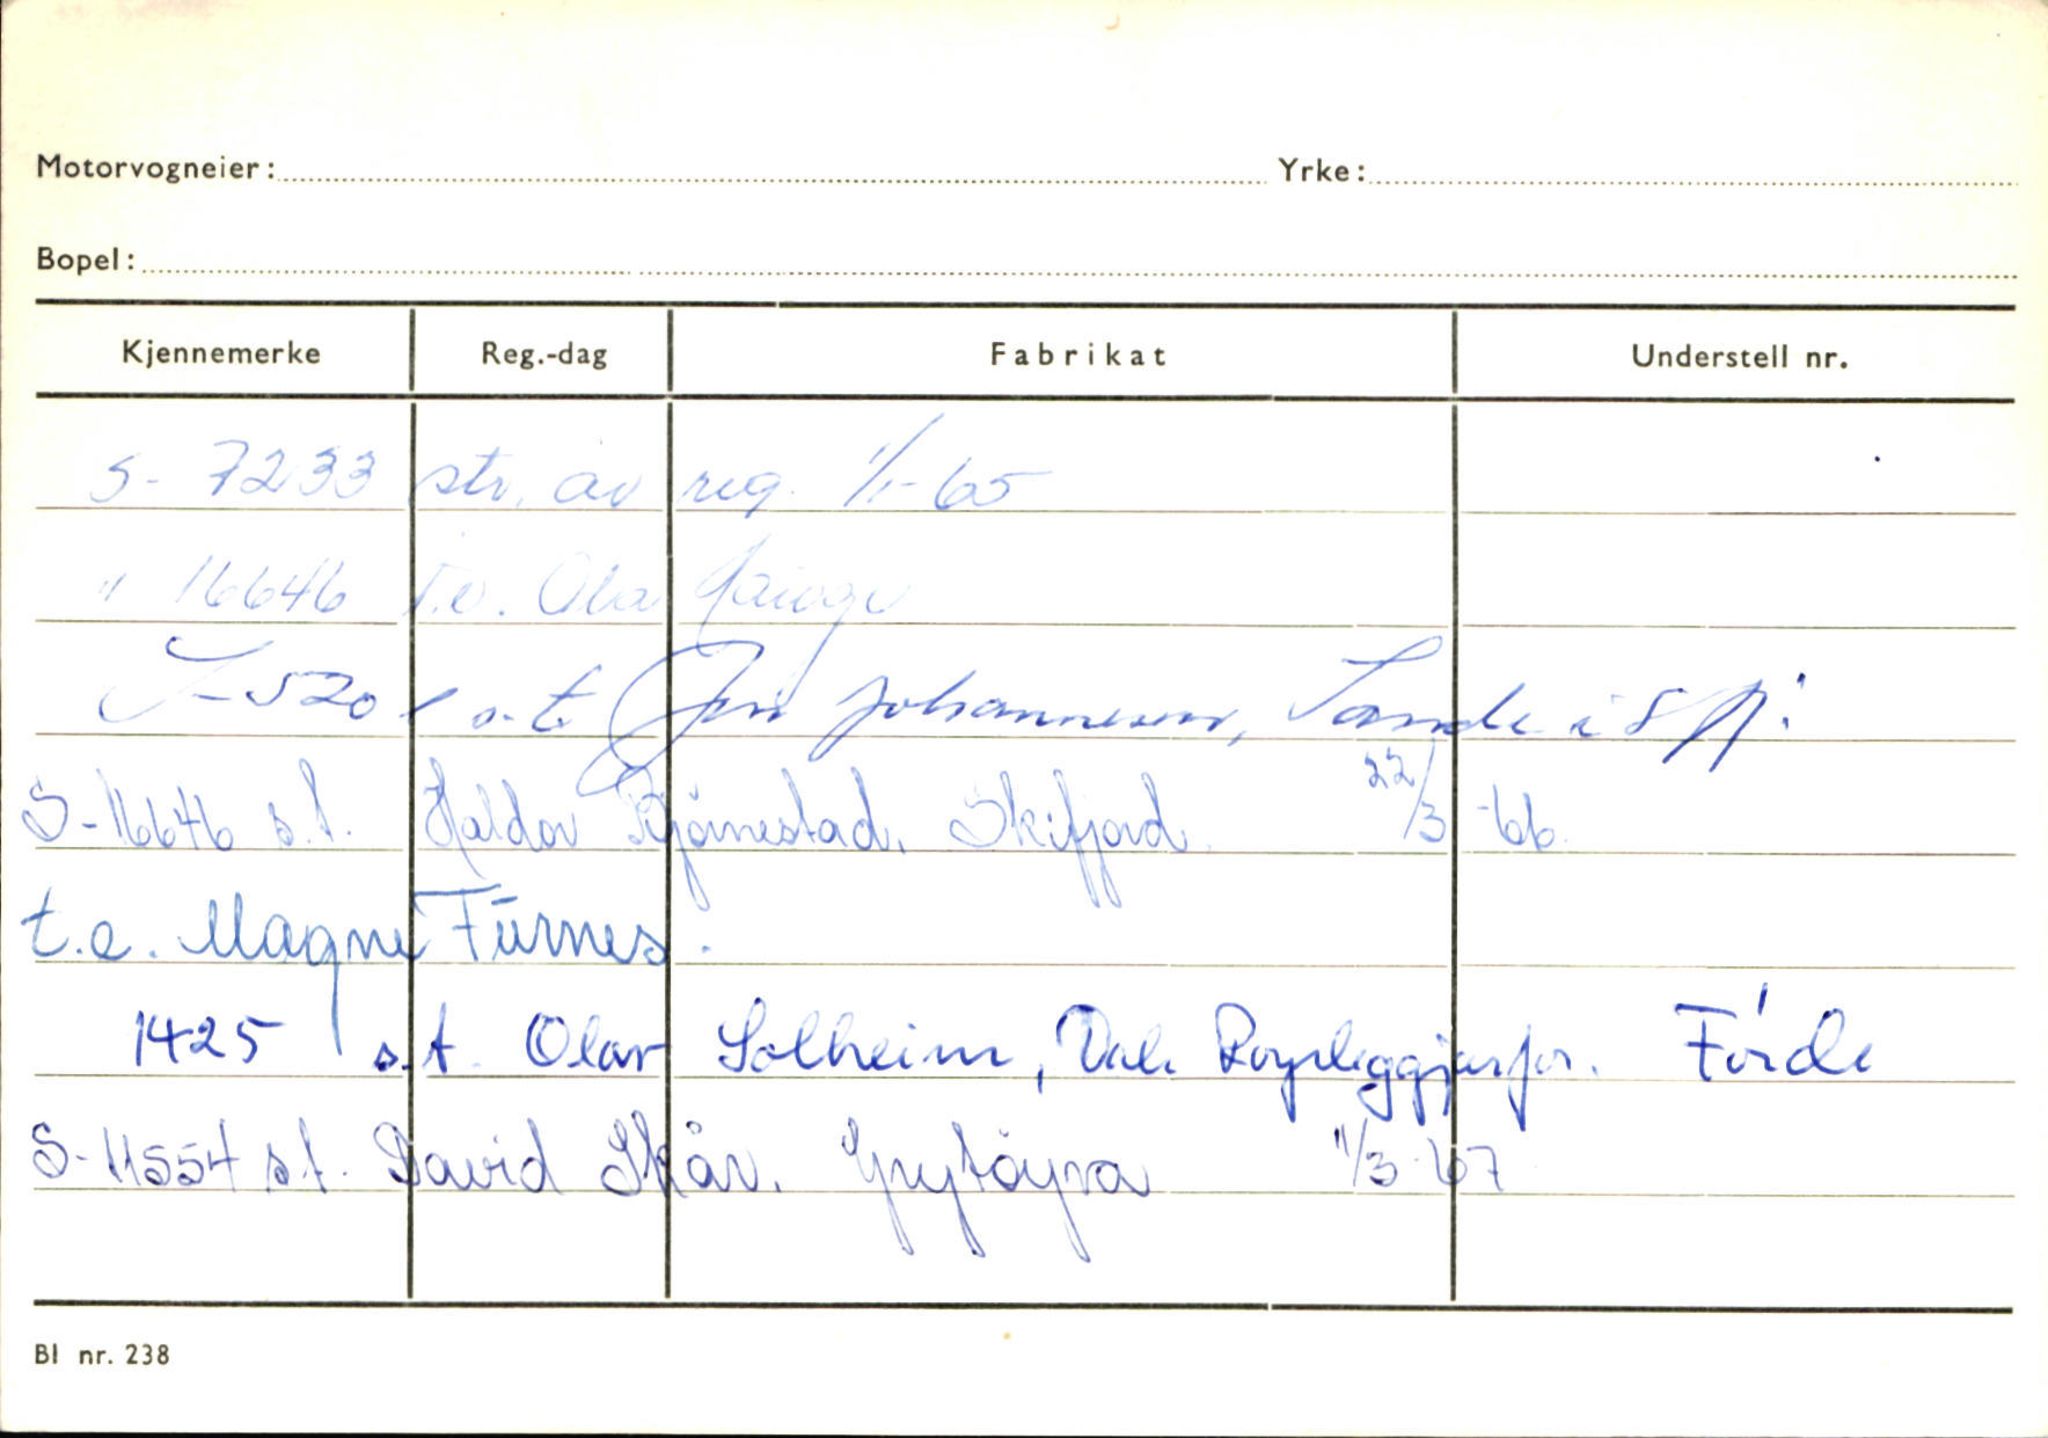 Motorvogneier: Yrke:
Bopel:
Kjennemerke Reg.-dag Fabrikat Understell nr.
S- 7233 str. av reg. 1/1-65
" 16646 t.e. Ola
S-5201 s.t. Jon Johannesen, Sande i S.fj.
S-16646 s.t. Haldor Bjørnestad, Skifjord. 22/3 -66.
t.e. Magne Furnes.
1425 s.t. Olav Solheim, Dale Førde
S-11554 s.t. David Skår. Grytøyra 11/3-67
Bl nr. 238